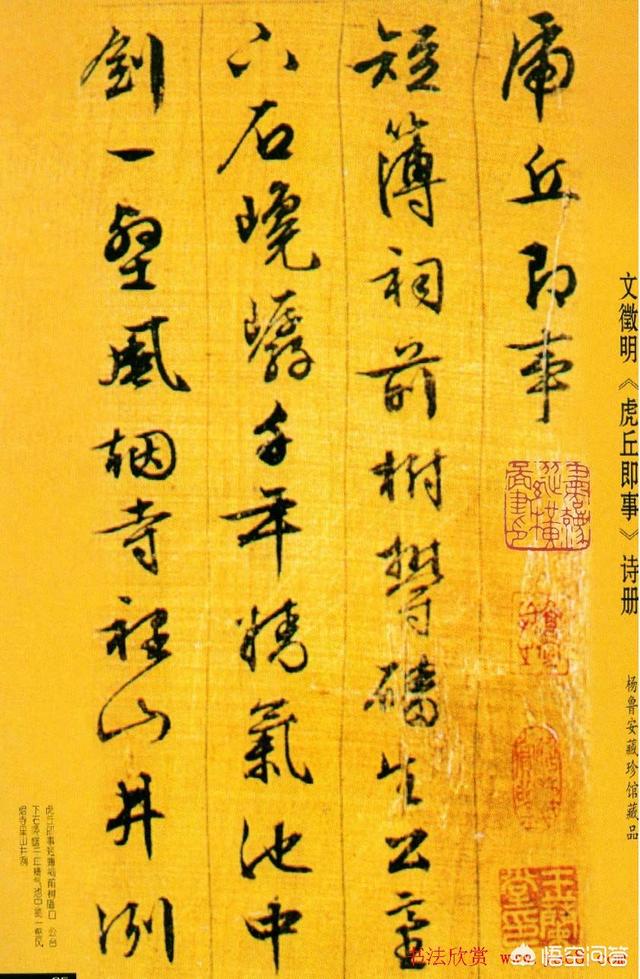 文徵明《虎丘即事》诗册
杨鲁安藏珍馆藏品
虎丘即事
短簿祠前樹鬱蟠生公臺
下石千年精氣池中
劍一壑風烟寺裡山井冽
玉蘭堂印
虎丘即事短簿祠前树 公台
下石千年精气池中剑一壑风
烟寺里山井冽
书法欣赏
悟空问答